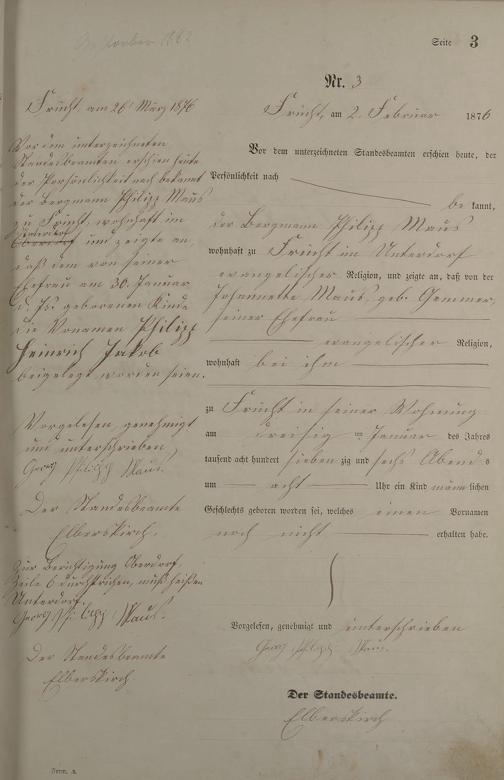 Gestorben 1882
Seite 3
Nr. 3
Frücht, am 2. Februar 1876
Vor dem unterzeichneten Standesbeamten erschien heute, der
Persönlichkeit nach
bekannt,
der Bergmann Philipp Maus
wohnhaft zu Frücht im Unterdorf
evangelischer Religion, und zeigte an, daß von der
Johannette Maus, geb. Gemmer,
seiner Ehefrau
evangelischer Religion,
wohnhaft bei ihm
zu Frücht in seiner Wohnung
am dreißig ten Januar des Jahres
tausend acht hundert siebenzig und sechs Abends
um acht Uhr ein Kind männlichen
Geschlechts geboren worden sei, welches einen Vornamen
noch nicht erhalten habe.
Vorgelesen, genehmigt und unterschrieben
Georg Philipp Maus.
Der Standesbeamte.
Elberskirch
Frücht, am 26 März 1876
Vor dem unterzeichneten
Standesbeamten erschien heute
der Persönlichkeit nach bekannt
der Bergmann Philipp Maus
zu Frücht, wohnhaft im
Unterdorf
Oberdorf und zeigte an,
daß dem von seiner
Ehefrau am 30. Januar
d. Js. geborenen Kinde
die Vornamen Philipp
Heinrich Jakob
beigelegt worden seien.
Vorgelesen, genehmigt
und unterschrieben
Georg Philipp Maus.
Der Standesbeamte
Elberskirch.
Zur Berichtigung Oberdorf
Zeile 6 durchstrichen, muß heißen
Unterdorf.
Georg Philipp Maus.
Der Standesbeamte
Elberskirch
Form. A.